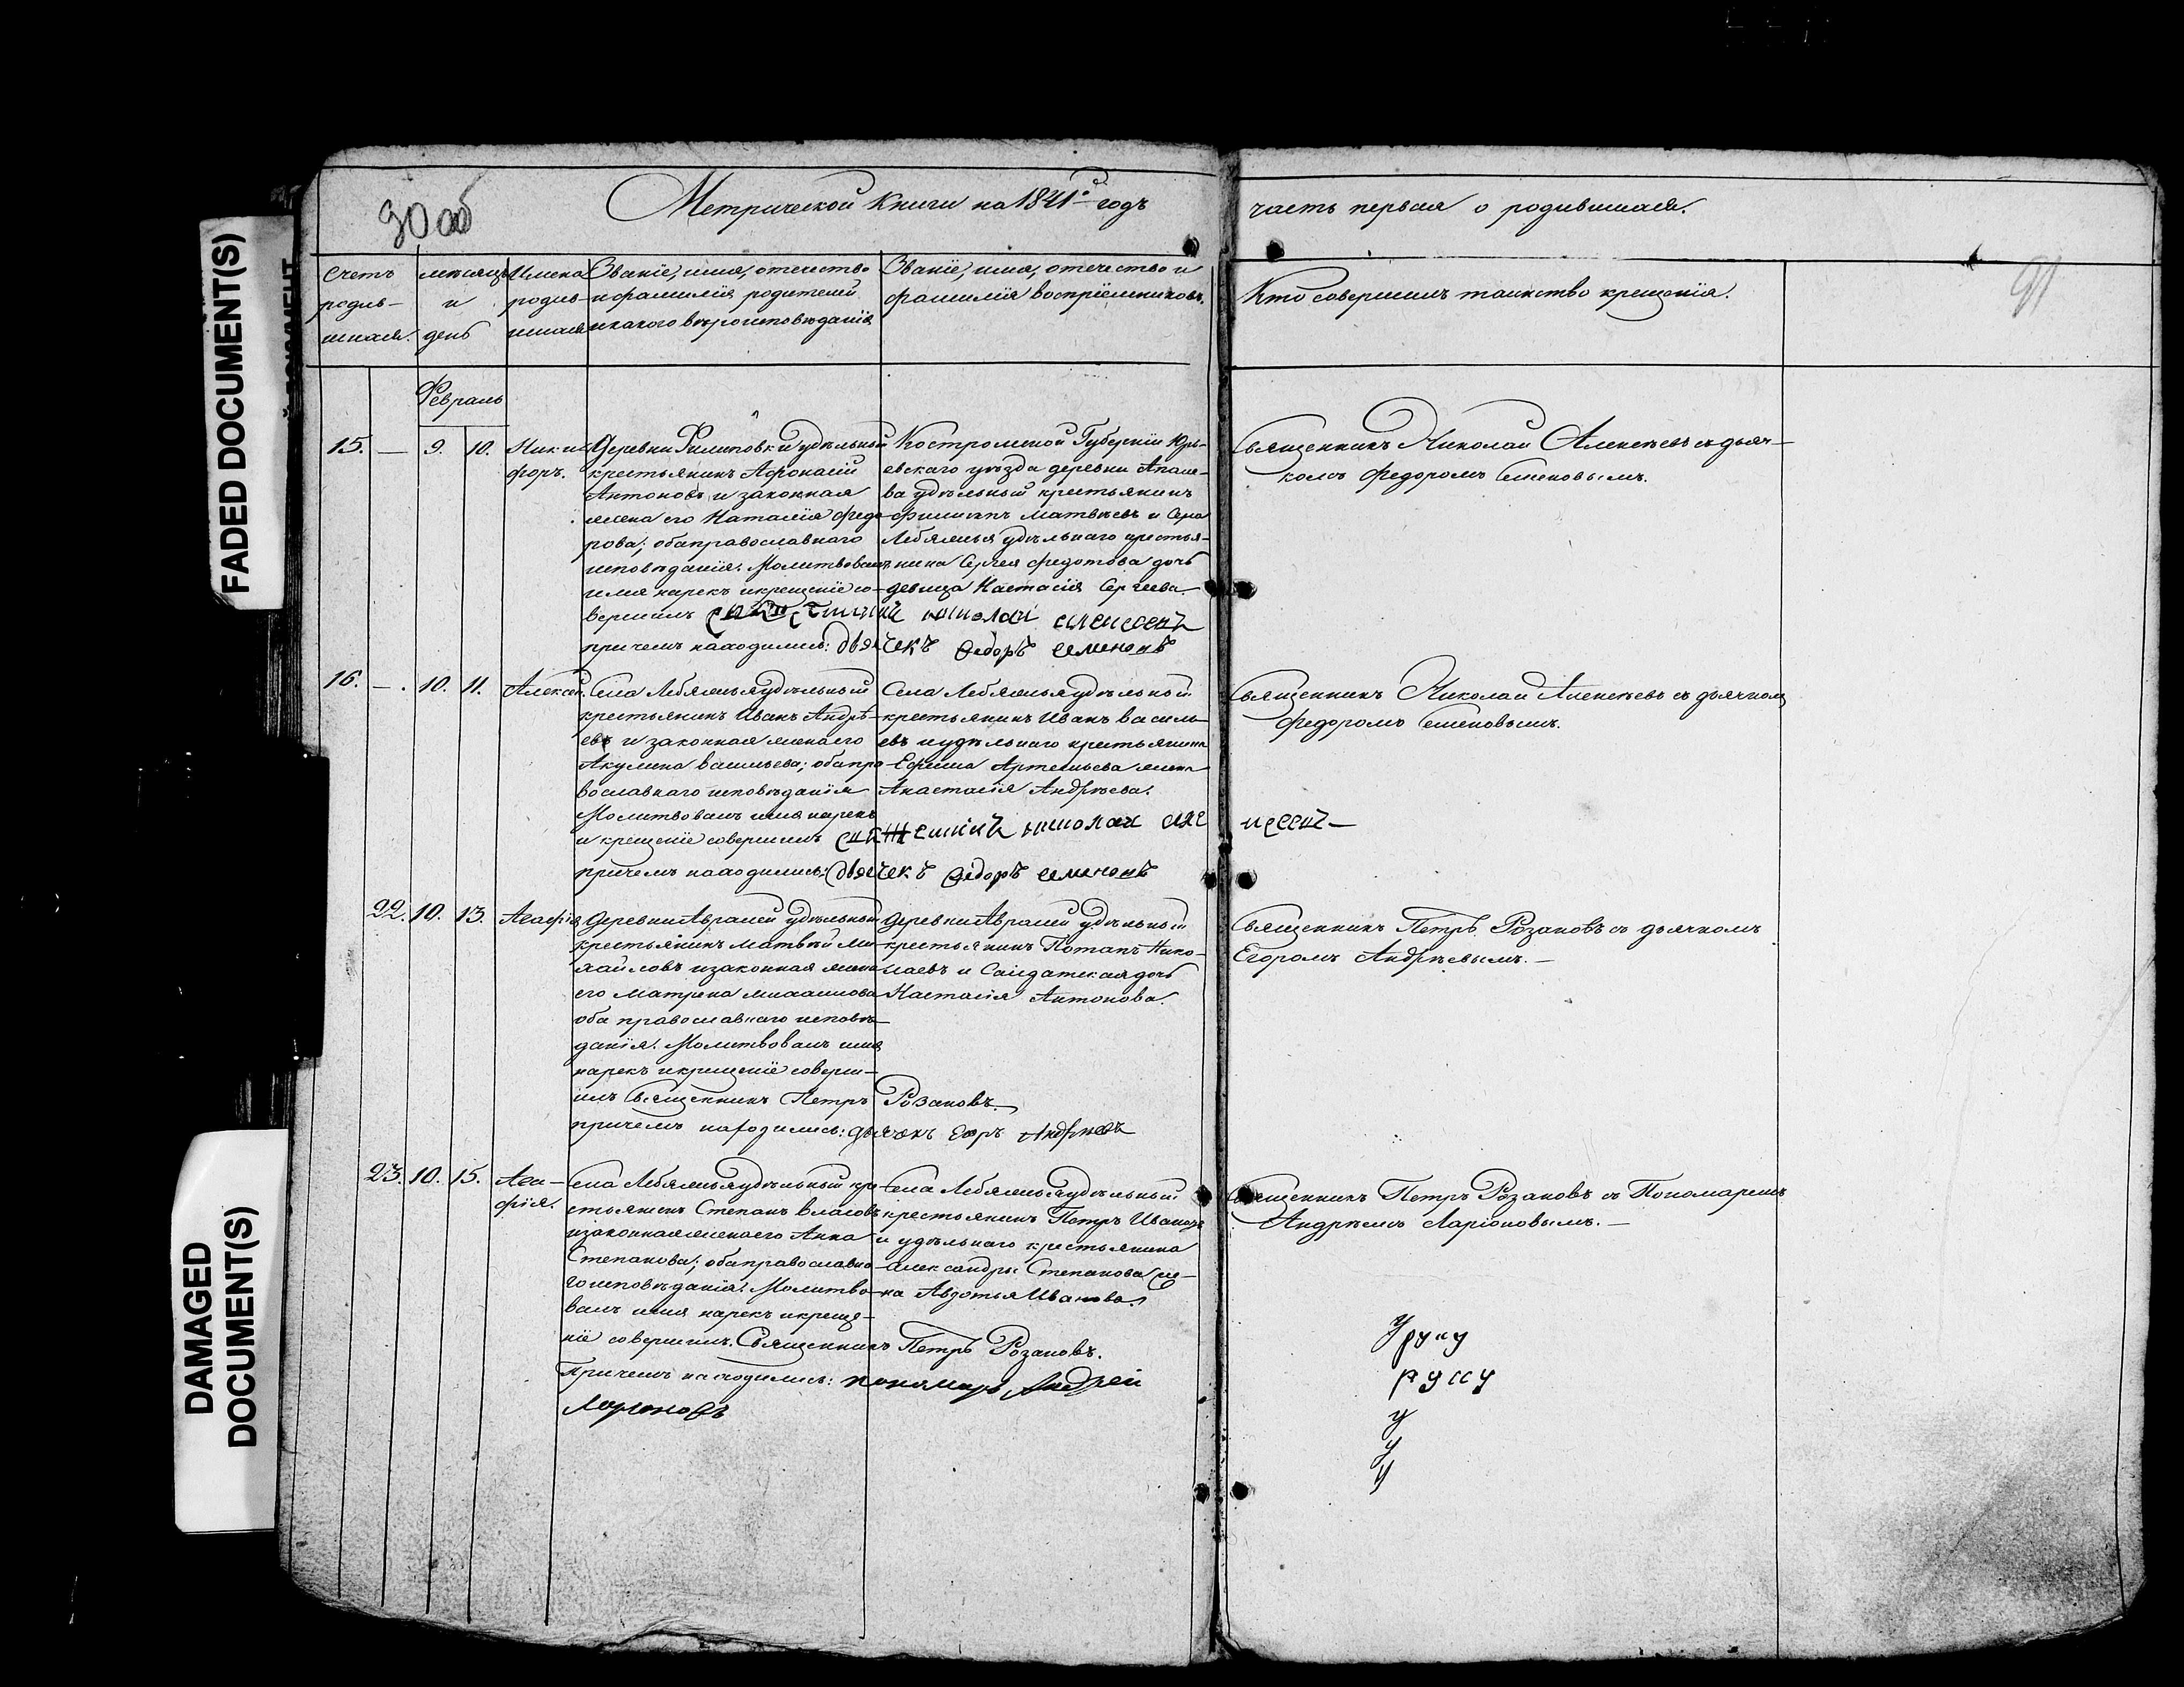 FADED DOCUMENT(S)
DAMAGED
DOCUMENT(S)
30 об
Метрической Книги на 1841й годъ
часть первая о родившихся.
91
Счетъ
родив-
шихся.
мѣсяцъ
и
день
Имена
родив-
шихся
Званіе, имя, отечество
и фамилія родителей
и какого вѣроисповѣданія
Званіе, имя, отечество и
фамилія воспріемниковъ.
Кто совершилъ таинство крещенія.
Февраль
15. — 9. 10.
Ники-
форъ.
Деревни Филиповки удѣльный
крестьянинъ Афонасій
Антоновъ и законная
жена его Наталія Федо-
рова; оба православнаго
исповѣданія. Молитвовалъ
имя нарекъ и крещеніе со-
вершилъ Священникъ Николай Алексеевъ
причемъ находились: дьячекъ Федоръ Семеновъ
Костромской Губерніи Юрь-
евскаго уѣзда деревни
ва удѣльный крестьянинъ
Филиппъ Матвѣевъ и Села
Лебяжья удѣльнаго крестья-
нина Сергея Федотова дочь
девица Настасія Сергеева.
Священникъ Николай Алексѣевъ съ дьяч-
комъ Федоромъ Семеновымъ.
16. — . 10. 11.
Алексей.
Села Лебяжья удѣльный
крестьянинъ Иванъ Андрѣ-
евъ и законная жена его
Акулина Васильева; оба пра-
вославнаго исповѣданія
Молитвовалъ имя нарекъ
и крещеніе совершилъ Священникъ Николай Алексеевъ —
причемъ находились: Дьячекъ Федоръ Семеновъ
Села Лебяжья удѣльной
крестьянинъ Иванъ Василь-
евъ и удѣльнаго крестьянина
Ефима Артемьева жена
Анастасія Андрѣева.
Священникъ Николай Алексѣевъ съ дьячкомъ
Федоромъ Семеновымъ.
22. 10. 13.
Агафія
Деревни Авралей удѣльный
крестьянинъ Матвѣй Ми-
хайловъ и законная жена
его Матрена Михаилова
оба православнаго исповѣ-
данія. Молитвовалъ имя
нарекъ и крещеніе соверш-
илъ Священникъ Петръ Розановъ.
причемъ находились: дьячекъ Егоръ Андрѣевъ
Деревни Авралей удѣльной
крестьянинъ Потапъ Нико-
лаевъ и Салдатская дочь
Настасія Антонова.
Священникъ Петръ Розановъ съ дьячкомъ
Егоромъ Андрѣевымъ. —
23. 10. 15.
Ага-
фія.
Села Лебяжья удѣльный кре-
стьянинъ Степанъ Власовъ
и законная жена его Анна
Степанова; оба православна-
го исповѣданія. Молитво-
валъ имя нарекъ и креще-
ніе совершилъ. Священникъ Петръ Розановъ.
Причемъ находились: пономарь Андрей
Ларионовъ
Села Лебяжья удѣльный
крестьянинъ Петръ Ивановъ
и удѣльнаго крестьянина
Александры Степанова же-
на Авдотья Иванова.
Священникъ Петръ Розановъ съ Пономаремъ
Андрѣемъ Ларіоновымъ. —
у
у
у